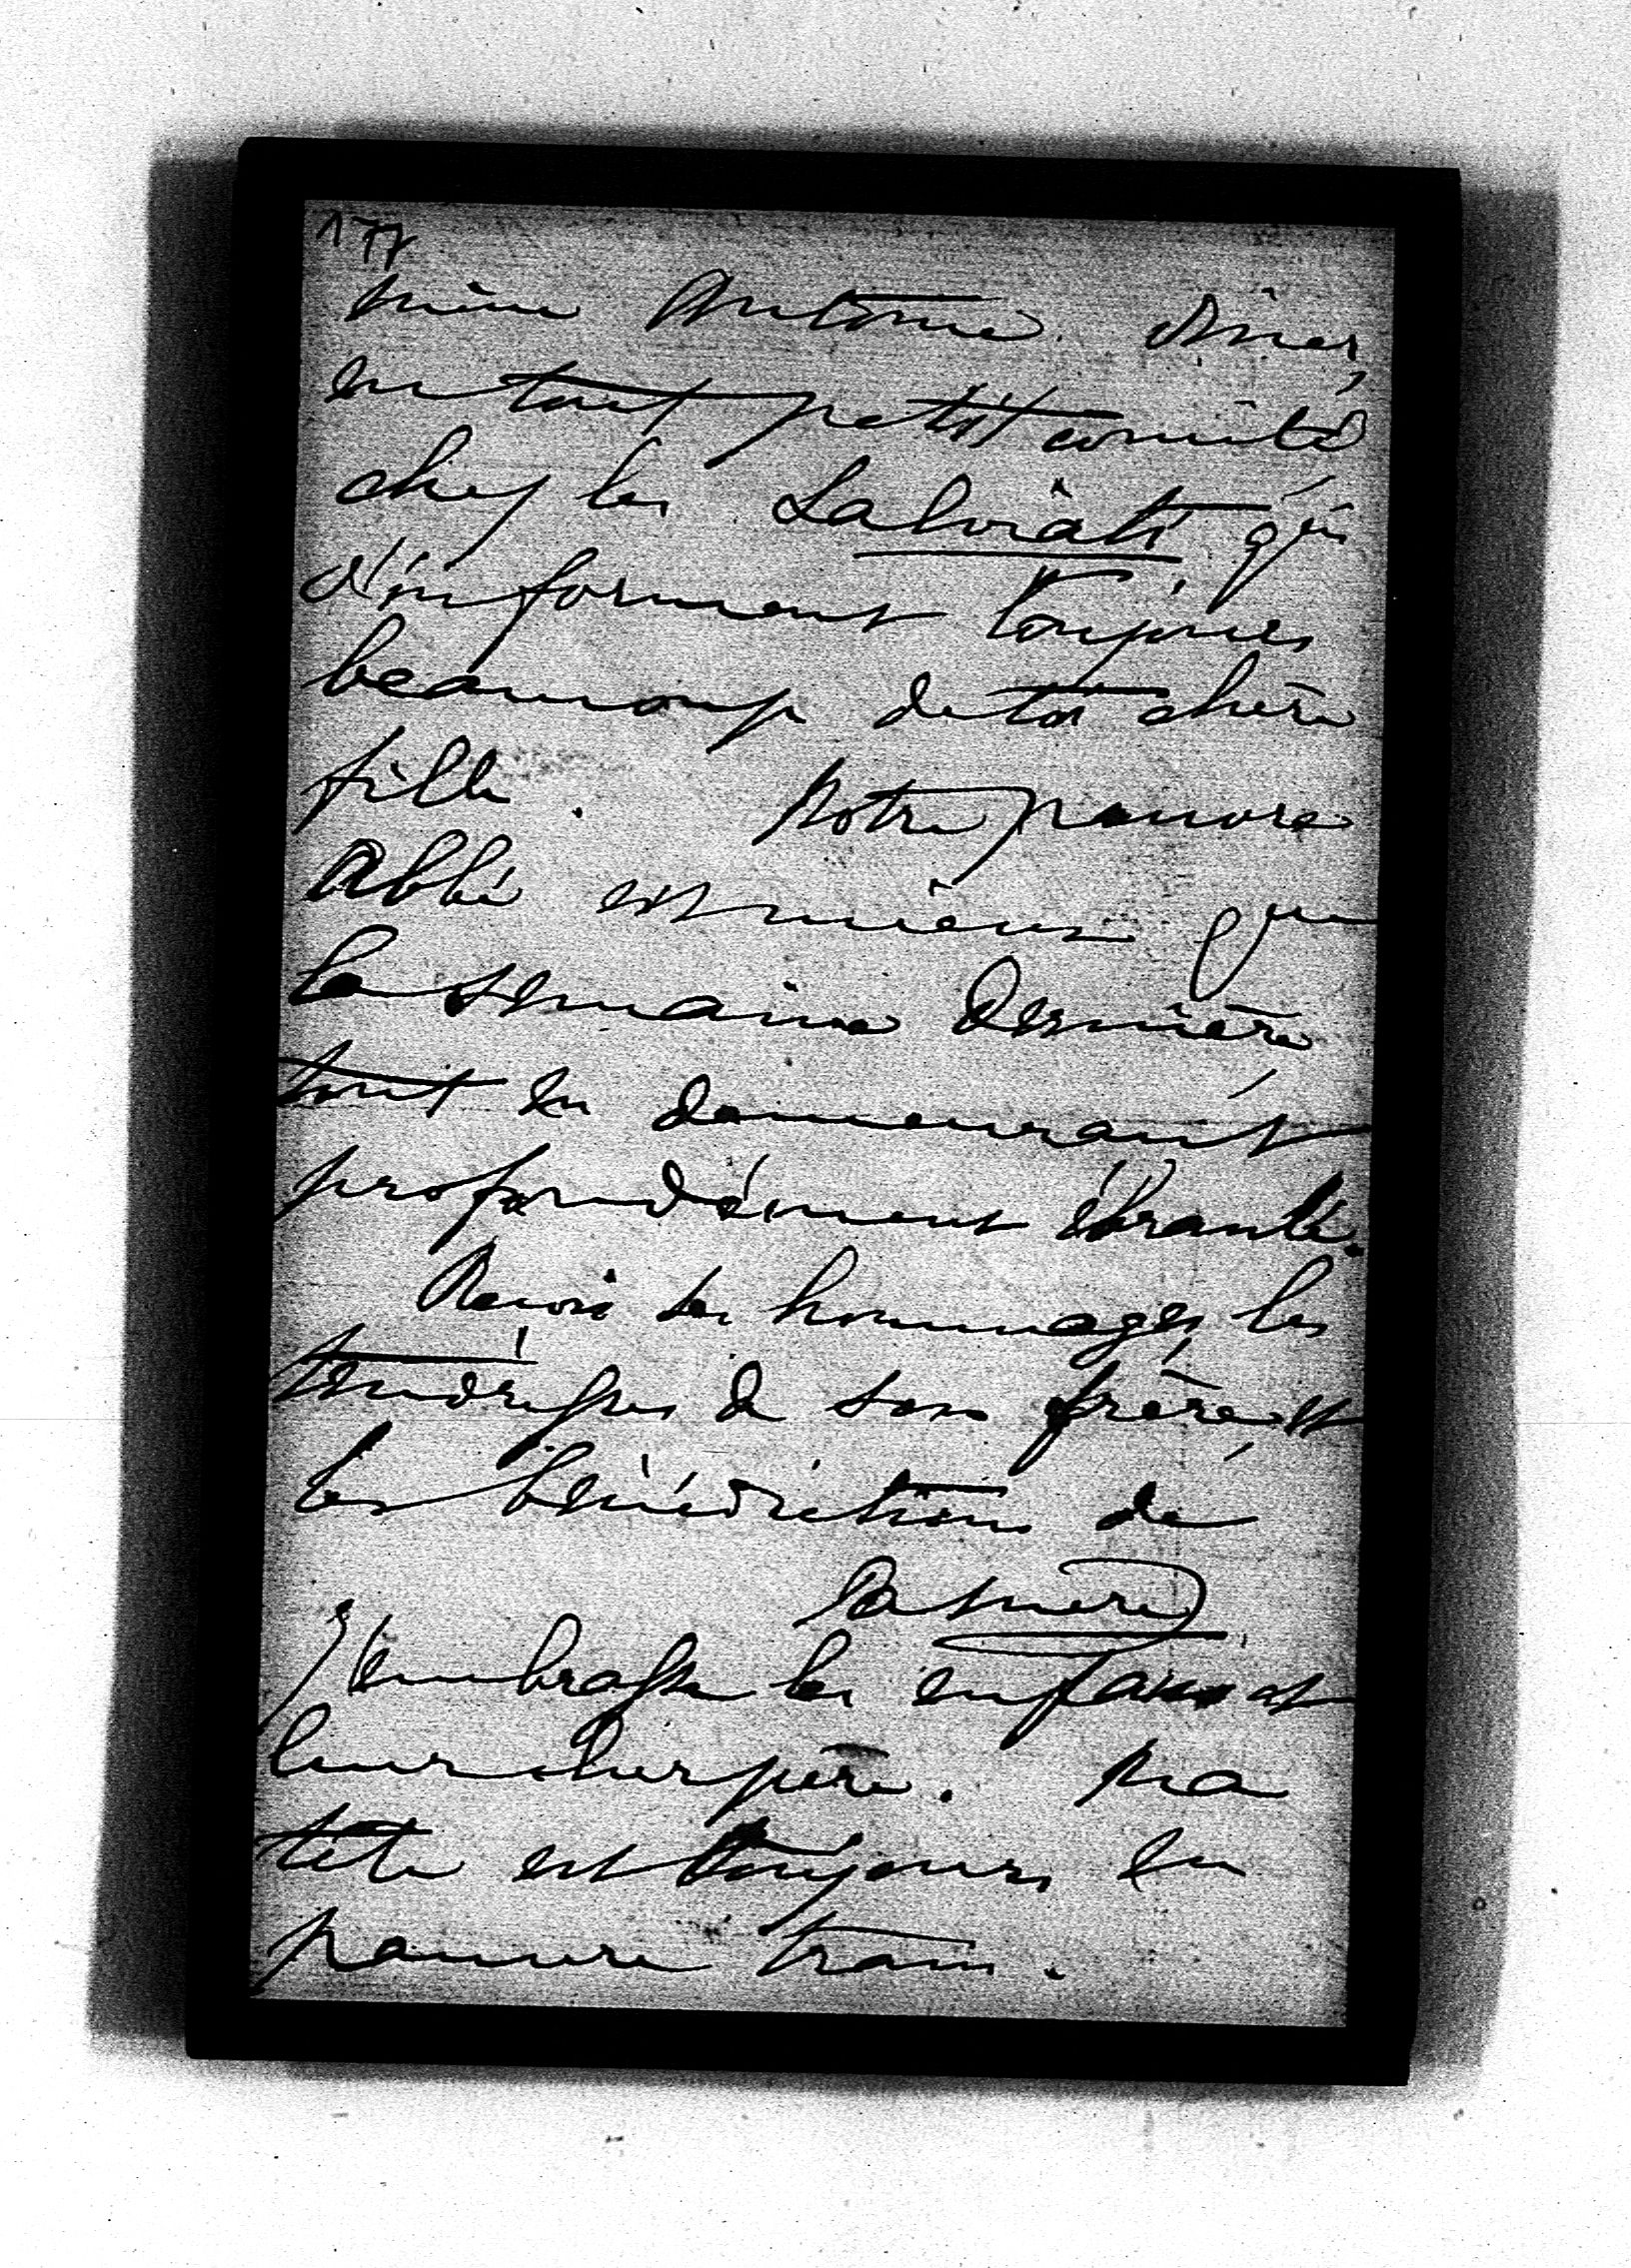 177
même Antoine. Dîner,
en tout petit comité
chez les Salviati qui
s'informent toujours
beaucoup de toi chère
fille. Notre pauvre
Abbé est mieux que
la semaine dernière
tout en demeurant
profondément ébranlé.
Reçois les hommages, les
tendresses de ton frère et
les bénédictions de
ta mère
J'embrasse les enfants et
leur cher père. Ma
tête est toujours en
pauvre train.